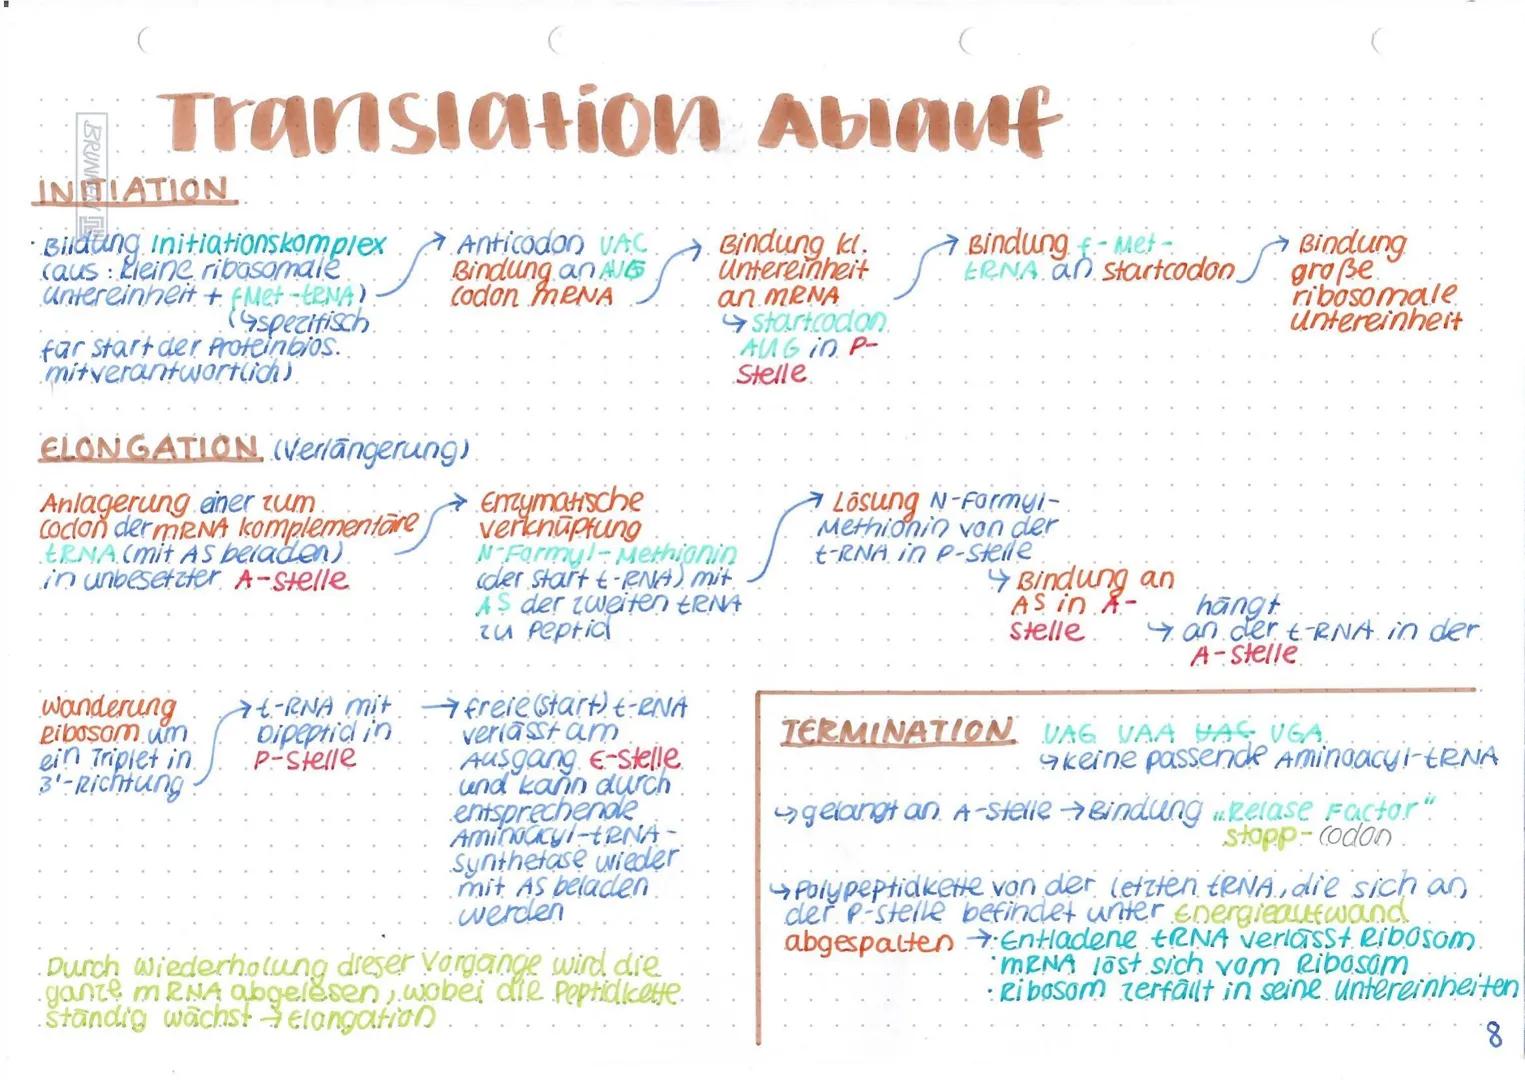 Translation Ablauf
BRUNNEN
INITIATION
· Bildung Initiationskomplex
(aus: kleine ribosomale
Untereinheit + fMet-tRNA)
(↳spezifisch
für Start der Proteinbios.
mitverantwortlich)
→ Anticodon UAC
Bindung an AUG
Codon mRNA
→ Bindung kl.
Untereinheit
an mRNA
↳ Startcodon
AUG in P-
Stelle
→ Bindung f-Met-
tRNA an Startcodon
→ Bindung
große
ribosomale
Untereinheit
ELONGATION (Verlängerung)
Anlagerung einer zum
Codon der mRNA komplementäre
tRNA (mit AS beladen)
in unbesetzter A-Stelle
→ Enzymatische
Verknüpfung
N-Formyl-Methionin
(der Start t-RNA) mit
AS der zweiten tRNA
zu Peptid
→ Lösung N-Formyl-
Methionin von der
t-RNA in P-Stelle
↳ Bindung an
AS in A-
Stelle
hängt
↳ an der t-RNA in der
A-Stelle
Wanderung
Ribosom um
ein Triplet in
3'-Richtung
→ t-RNA mit
Dipeptid in
P-Stelle
→ freie (Start) t-RNA
verlässt am
Ausgang E-Stelle
und kann durch
entsprechende
Aminoacyl-tRNA-
Synthetase wieder
mit AS beladen
werden
Durch Wiederholung dieser Vorgänge wird die
ganze mRNA abgelesen, wobei die Peptidkette
ständig wächst → Elongation
TERMINATION UAG UAA UAC UGA
↳ keine passende Aminoacyl-tRNA
↳ gelangt an A-Stelle → Bindung „Relase Factor"
Stopp-Codon
↳ Polypeptidkette von der letzten tRNA, die sich an
der P-Stelle befindet unter Energieaufwand
abgespalten → · Entladene tRNA verlässt Ribosom
· mRNA löst sich vom Ribosom
· Ribosom zerfällt in seine Untereinheiten
8